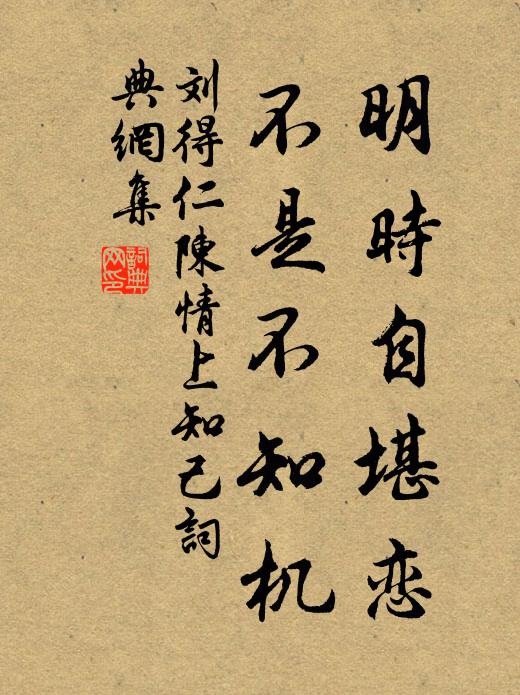 明時自堪恋
不是不知机
刘得仁陳情上知己詞
典網集
詞典
网印